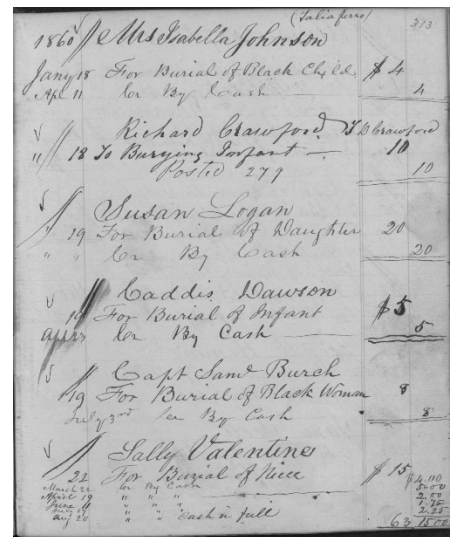 (Taliaferro) 313
1860 Mrs Isabella Johnson
Jany 18 For Burial of Black Child $4
Apl 11 Cr By Cash 4
Richard Crawford
" 18 To Burying Infant 10
Posted 279 10
Susan Logan
" 19 For Burial of Daughter 20
" " Cr By Cash 20
Caddis Dawson
19 For Burial of Infant $5
Cr By Cash 5
Capt Saml Burch
19 For Burial of Black Woman 8
July 3rd Cr By Cash 8
Sally Valentine
22 For Burial of Niece $15
March 22 Cr By Cash 4.00
April 19 " " " 5.00
June 11 " " " 2.00
" " " 1.75
Aug 20 " Cash in full 2.25
63 15.00